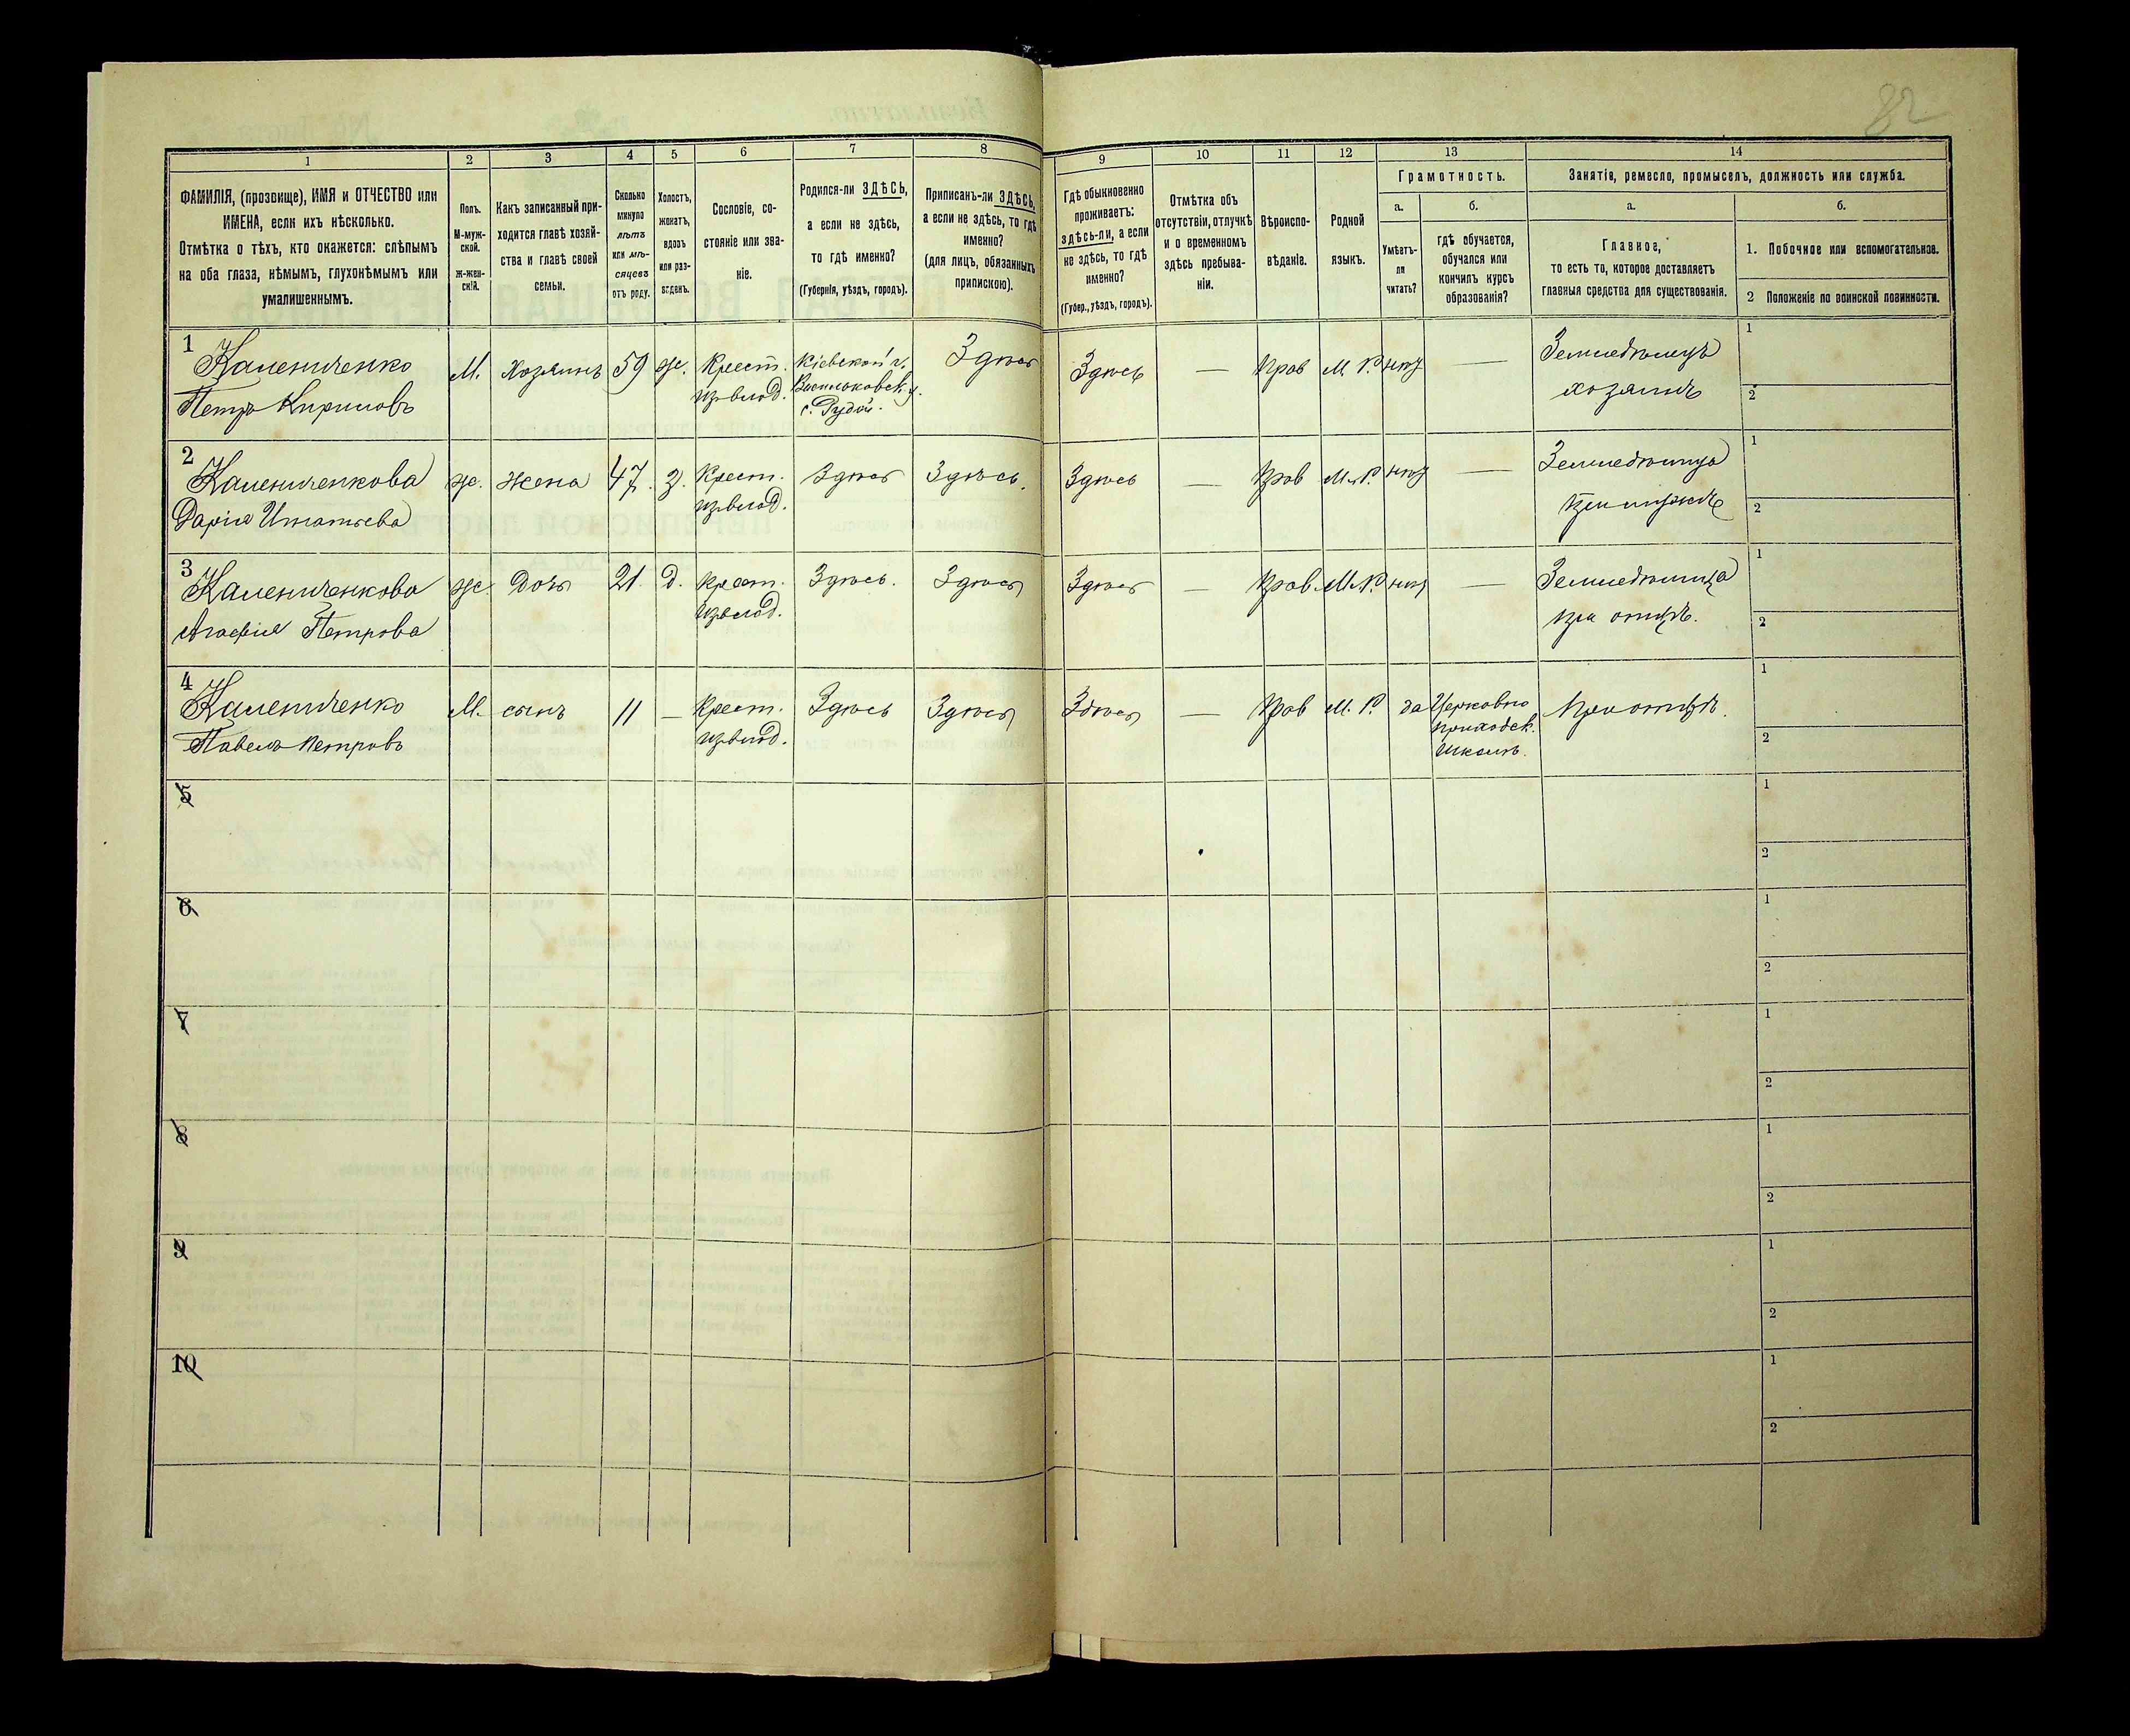 82
1 2 3 4 5 6 7 8
ФАМИЛІЯ, (прозвище), ИМЯ и ОТЧЕСТВО или
ИМЕНА, если ихъ нѣсколько.
Отмѣтка о тѣхъ, кто окажется: слѣпымъ
на оба глаза, нѣмымъ, глухонѣмымъ или
умалишеннымъ.
Полъ.
М-муж-
ской.
ж-жен-
скій.
Какъ записанный при-
ходится главѣ хозяй-
ства и главѣ своей
семьи.
Сколько
минуло
лѣтъ
или мѣ-
сяцевъ
отъ роду.
Холостъ,
женатъ,
вдовъ
или раз-
веденъ.
Сословіе, со-
стояніе или зва-
ніе.
Родился-ли ЗДѢСЬ,
а если не здѣсь,
то гдѣ именно?
(Губернія, уѣздъ, городъ).
Приписанъ-ли ЗДѢСЬ,
а если не здѣсь, то гдѣ
именно?
(для лицъ, обязанныхъ
припискою).
9 10 11 12 13 14
Гдѣ обыкновенно
проживаетъ:
здѣсь-ли, а если
не здѣсь, то гдѣ
именно?
(Губер., уѣздъ, городъ).
Отмѣтка объ
отсутствіи, отлучкѣ
и о временномъ
здѣсь пребыва-
ніи.
Вѣроиспо-
вѣданіе.
Родной
языкъ.
Грамотность.
а.
Умѣетъ-
ли
читать?
б.
гдѣ обучается,
обучался или
кончилъ курсъ
образованія?
Занятія, ремесло, промыселъ, должность или служба.
а.
Главное,
то есть то, которое доставляетъ
главныя средства для существованія.
б.
1. Побочное или вспомогательное.
2 Положеніе по воинской повинности.
1
Калениченко
Петръ Кириловъ
М. Хозяинъ 59 ж. Крест. Кіевской г. Здѣсь
из влад. Васильковск. у.
с. Рудой.
Здѣсь — Прав М. Р. нѣт — Земледѣлецъ
хозяинъ
1
2
2
Калениченкова
Дарія Игнатьева
ж. Жена 47. з. Крест. Здѣсь Здѣсь.
из влад.
Здѣсь — Прав М. Р. нѣт — Земледѣлица
при мужѣ
1
2
3
Калениченкова
Агафія Петрова
ж. Дочь 21. д. Крест. Здѣсь. Здѣсь
из влад.
Здѣсь — Прав. М. Р. нѣт — Земледѣлица
при отцѣ.
1
2
4
Калениченко
Павелъ Петровъ
М. сынъ 11 — Крест. Здѣсь Здѣсь
из влад.
Здѣсь — Прав М. Р. да Церковно При отцѣ.
приходск.
школѣ.
1
2
5
1
2
6
1
2
7
1
2
8
1
2
9
1
2
10
1
2